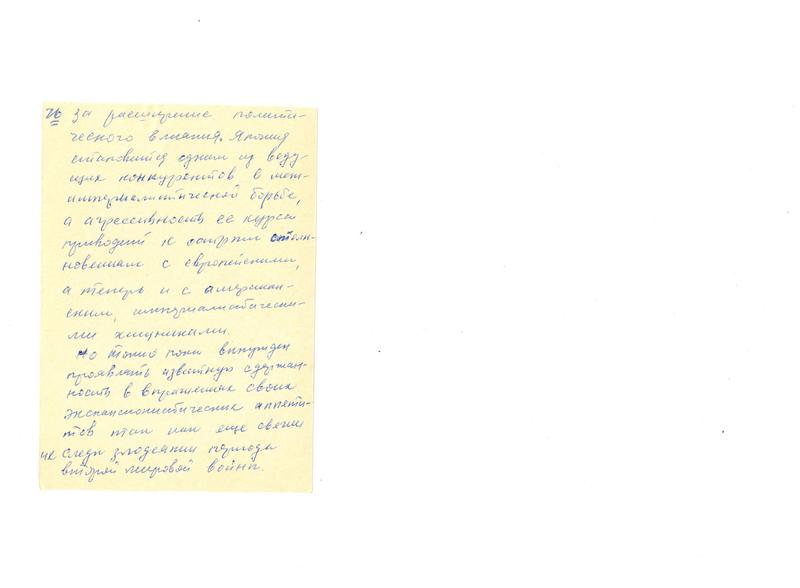 26 за расширение полити-
ческого влияния. Япония
становится одним из веду-
щих конкурентов в меж-
империалистической борьбе,
а агрессивность ее курса
приводит к острым столк-
новениям с европейскими,
а теперь и с американ-
скими, империалистически-
ми хищниками.
Но Токио пока вынужден
проявлять известную сдержан-
ность в выражениях своих
экспансионистических аппети-
тов так как еще свежи
их следы злодеяний периода
второй мировой войны.